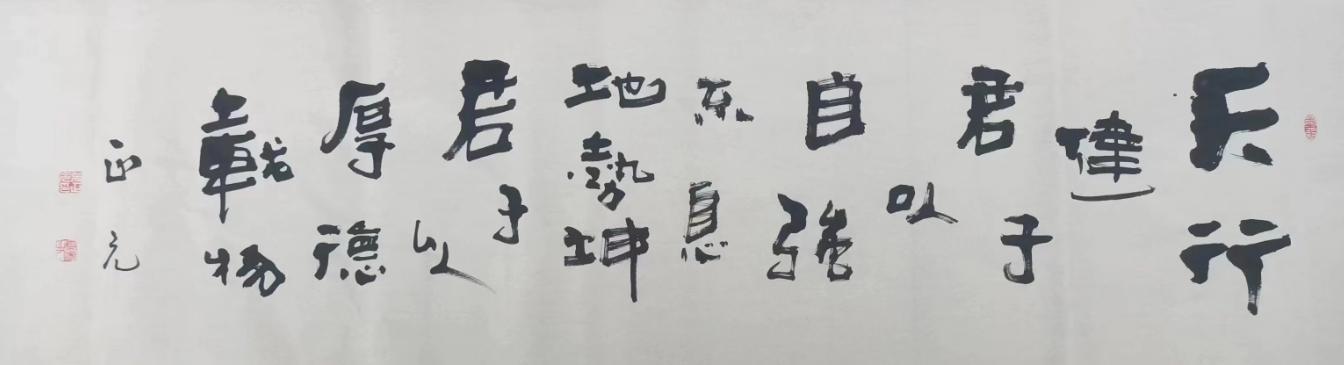 天行
健
君子
以
自強
不息
地勢坤
君子
以
厚德
載物
正元